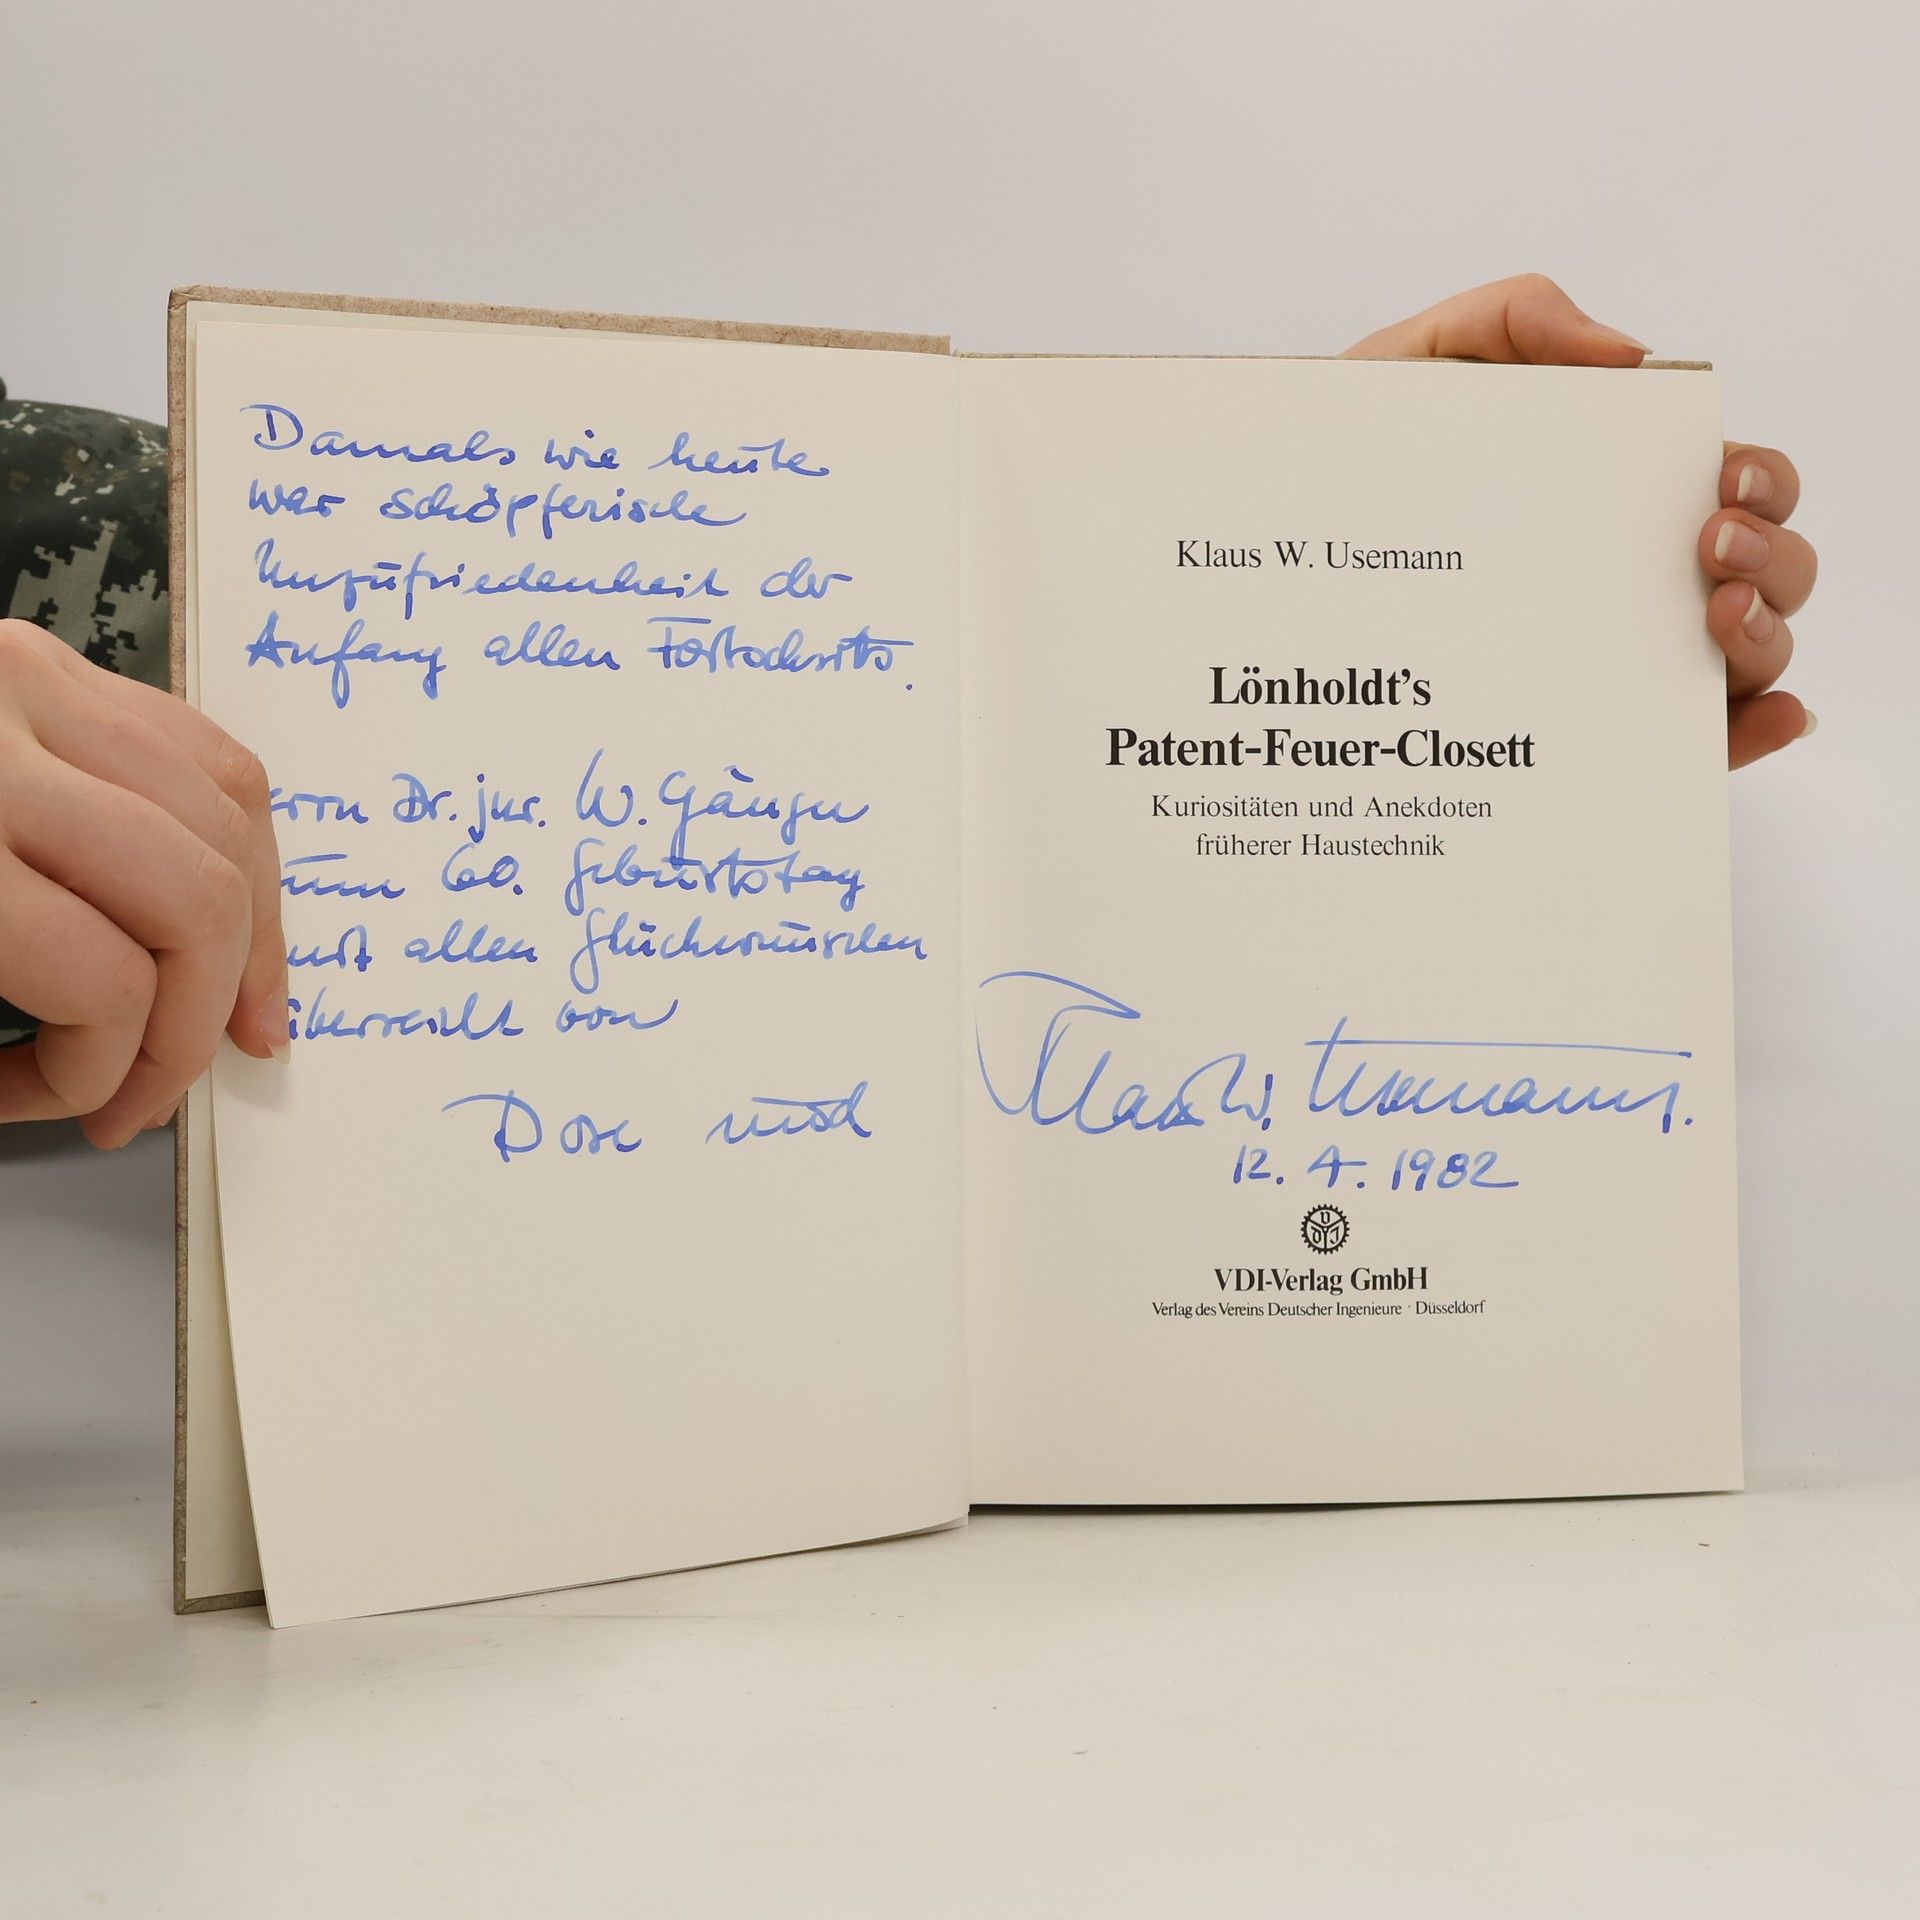 Damals wie heute
war schöpferische
Unzufriedenheit der
Anfang allen Fortschritts.
errn Dr. jur. W.
um 60. Geburtstag
mit allen Glückwünschen
überreicht von
und
Klaus W. Usemann
Lönholdt's
Patent-Feuer-Closett
Kuriositäten und Anekdoten
früherer Haustechnik
Klaus W. Usemann.
12. 4. 1982
VDI
VDI-Verlag GmbH
Verlag des Vereins Deutscher Ingenieure · Düsseldorf